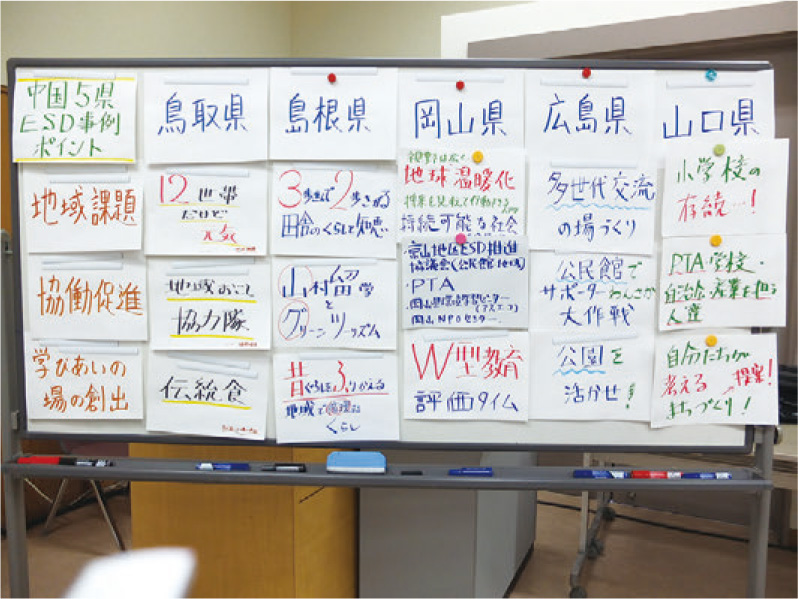 中国5県
ESD事例
ポイント
鳥取県
島根県
岡山県
広島県
山口県
地域課題
12世帯
だけど
元気
3歩進で2歩さがる
田舎のくらしで知恵い
地球温暖化
持続可能な社会
多世代交流
の場づくり
小学校の
存続…!
協働促進
地域おこし
協力隊
山村留学
と
グリーンツーリズム
京山地区ESD推進
協議会(公民館・地域)
・PTA
岡山NPOセンター
公民館で
サポーターわんさか
大作戦
PTA・学校・
自治会・産業を担う
人達
学びあいの
場の創出
伝統食
昔ぐらしをふりかえる
地域で循環る
くらし
W型教育
評価タイム
公園を
活かせ!
自分たちが
考える 提案!
まちづくり!